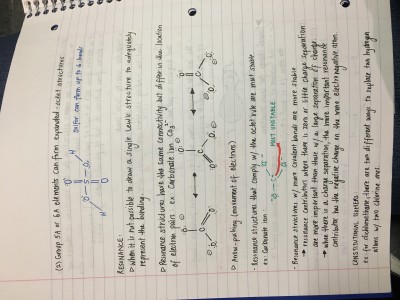 (3) Group 5A or 6A elements can form expanded-octet structures
Sulfur can form up to 6 bonds
RESONANCE:
▷ When it is not possible to draw a single Lewis structure to adequately
represent the bonding.
▷ Resonance structures have the same connectivity but differ in the location
of electron pairs. ex: Carbonate ion CO3 2-
▷ Arrow-pushing (movement of electrons)
- Resonance structures that comply w/ the octet rule are most stable
ex: Carbonate ion
MOST UNSTABLE
- Resonance structures w/ more covalent bonds are more stable
→ resonance contributors where there is zero or little charge separation
are more important than those w/ a large separation of charge.
→ when there is a charge separation, the more important resonance
contributor has the negative charge on the more electronegative atom.
CONSTITUTIONAL ISOMERS
ex: for dichloroethane, there are two different ways to replace two hydrogen
atoms w/ two chlorine ones.